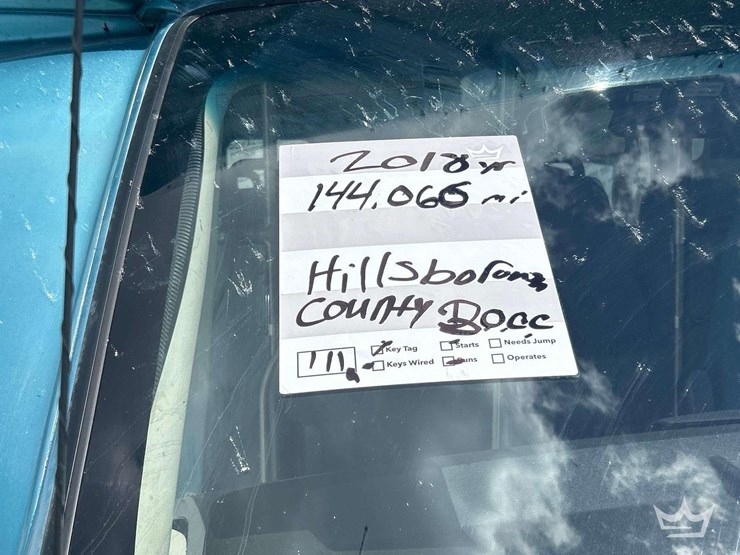 2018 yr
144,066 mi
Hillsborough
County BOCC
111 Key Tag Starts Needs Jump
Keys Wired Runs Operates